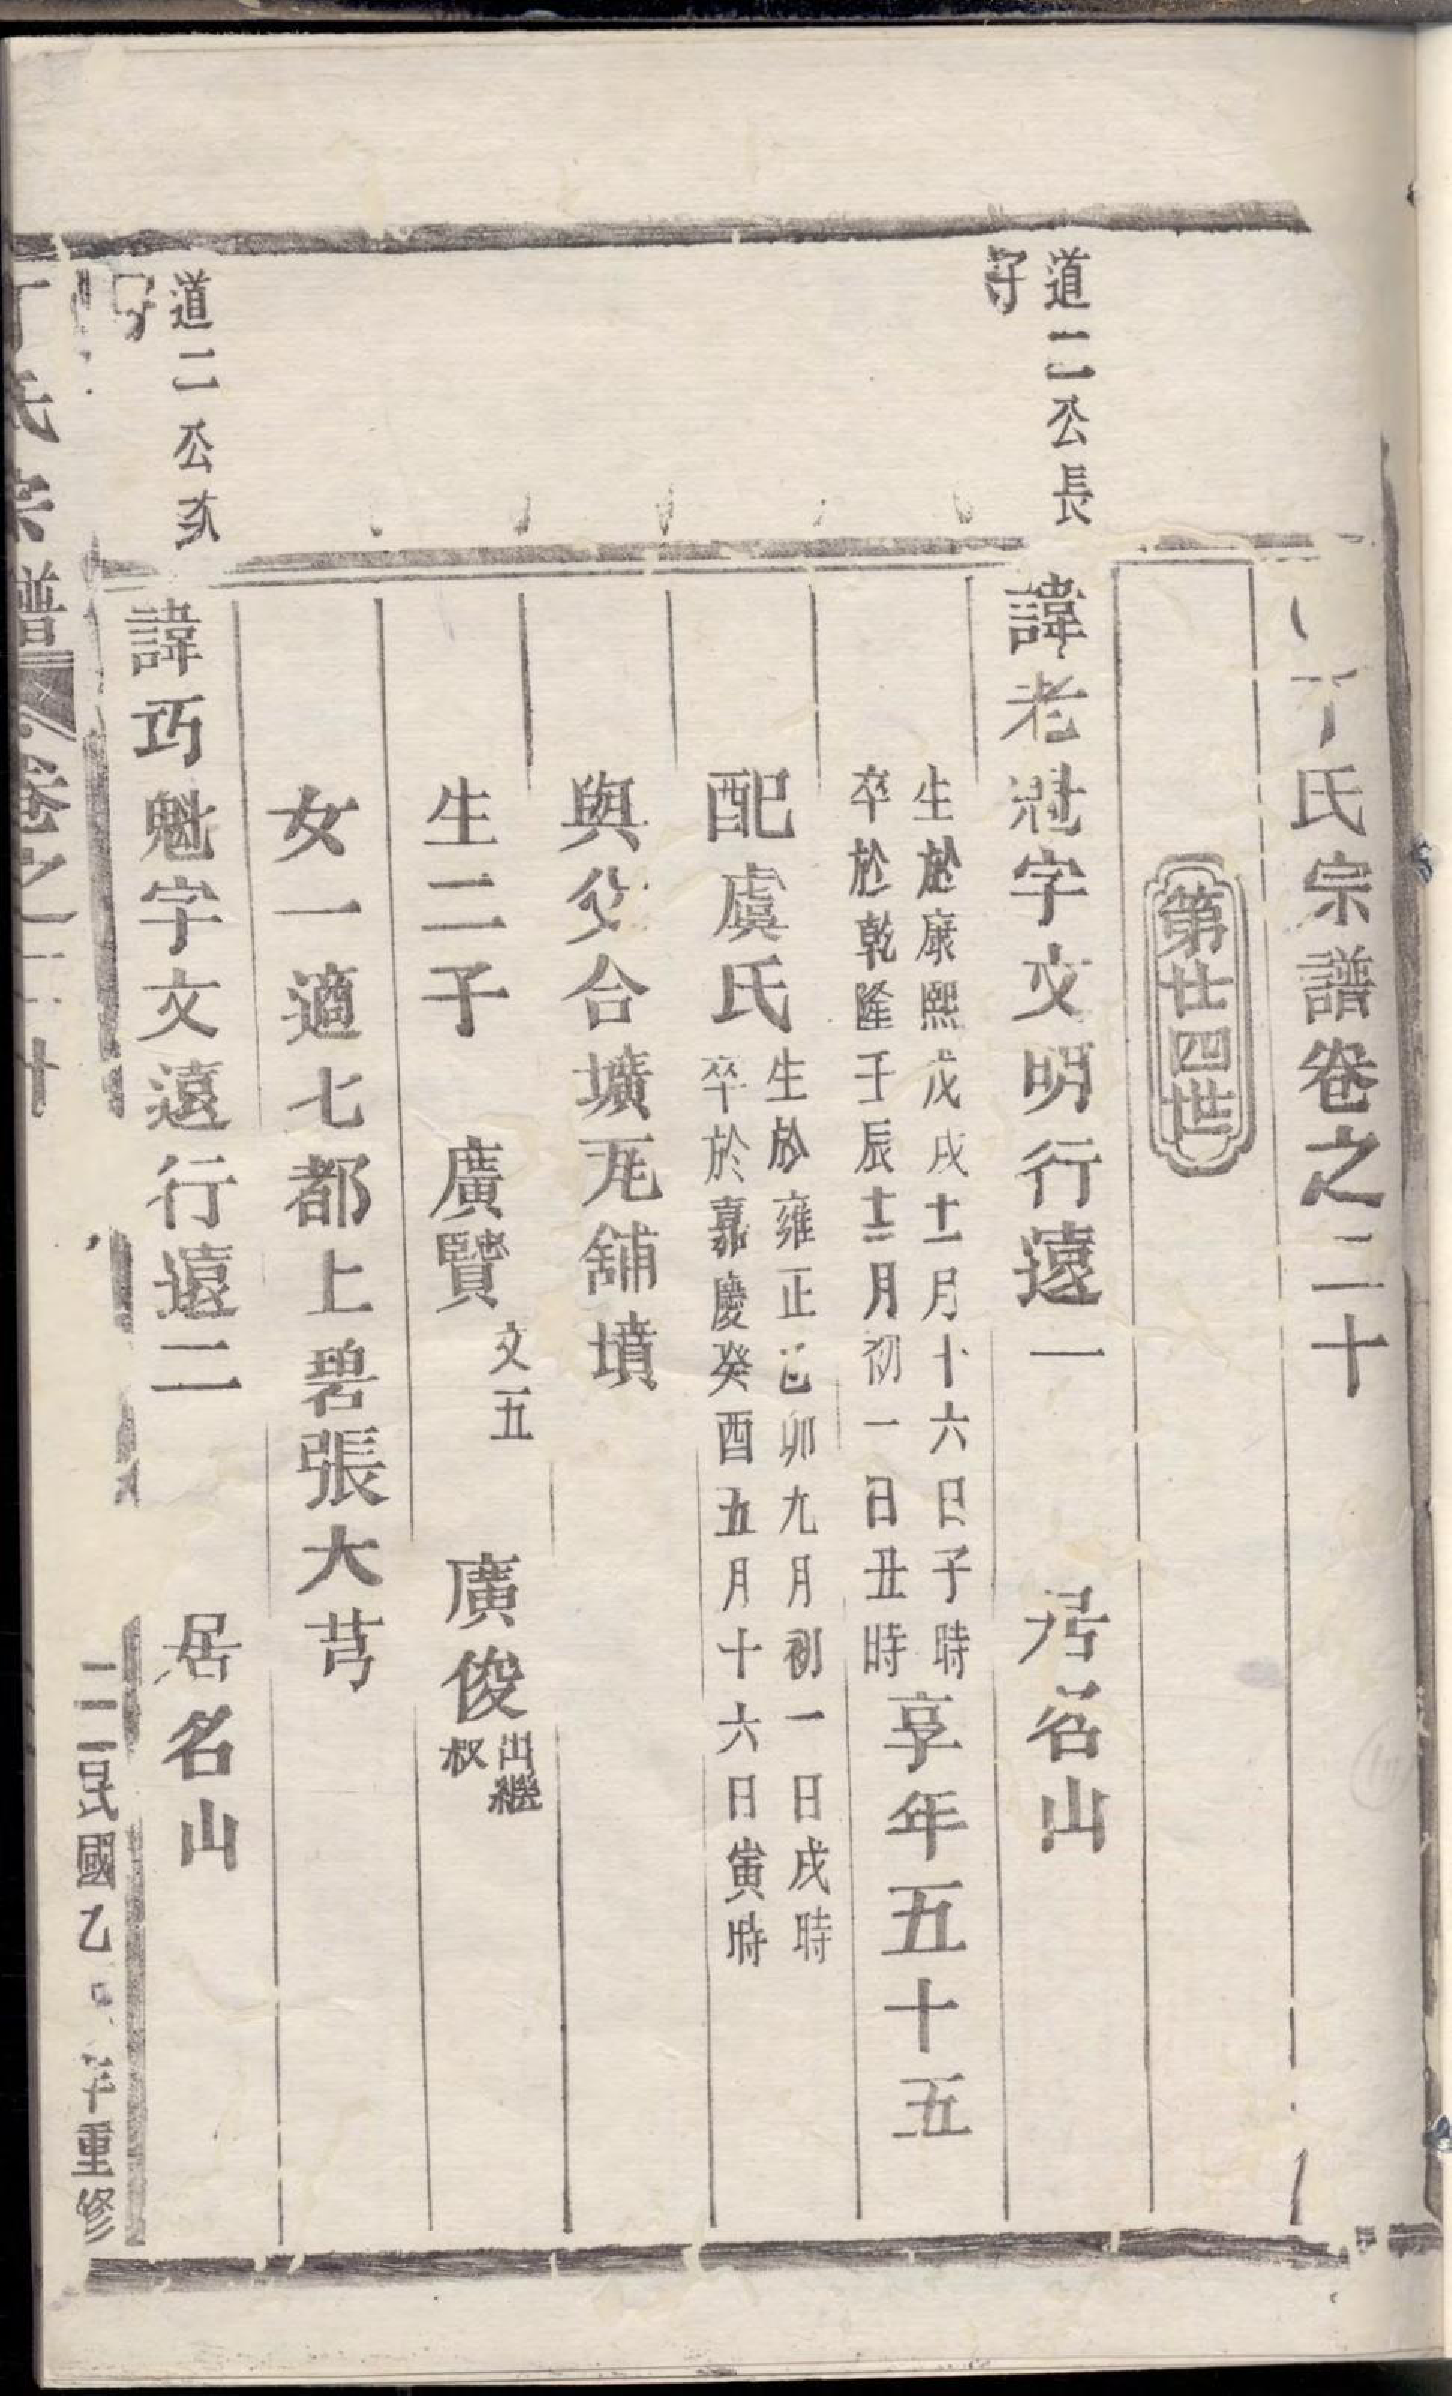 丁氏宗譜卷之二十
第廿四世
道二公長
子
諱老魁字文明行遠一　居名山
生於康熙戊戌十一月十六日子時
卒於乾隆壬辰十二月初一日丑時
享年五十五
配虞氏
生於雍正己卯九月初一日戌時
卒於嘉慶癸酉五月十六日寅時
與父合壙瓦舖墳
生二子　廣賢　文五　廣俊　出繼
叔
女一適七都上碧張大芎
道二公次
子
諱巧魁字文遠行遠二　居名山
丁氏宗譜　卷之二十
民國乙　年重修